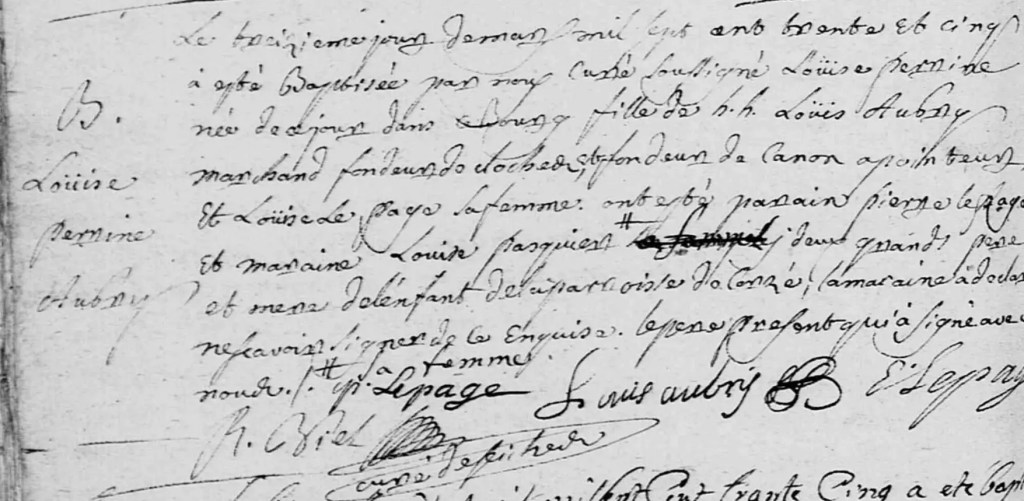 Le treizieme jour de mars mil sept cent trente Et cinq
à esté Baptisée par nous Curé soussigné Loüise perrine
née de ce jour dans ce Bourg fille de h. h. Loüis Aubry
marchand fondeur de cloches, et fondeur de Canon
Et Loüise Le page sa femme. ont esté parain pierre lepage
Et maraine Louise pasquier # deux grands pere
et mere de l'énfant de la parroisse de Corzé, la maraine à declaré
ne scavoir signer de ce Enquise. le pere present qui à signé avec
nous. /. # sa femme
B.
Loüise
perrine
Aubry
p. Lepage Louis aubry E. Lepage
R. Briel
curé de
Cent trante Cinq a eté bapt